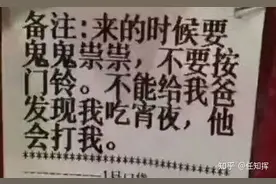 备注:来的时候要
鬼鬼祟祟，不要按
门铃。不能给我爸
发现我吃宵夜，他
会打我。
********************
知乎 @任知挥